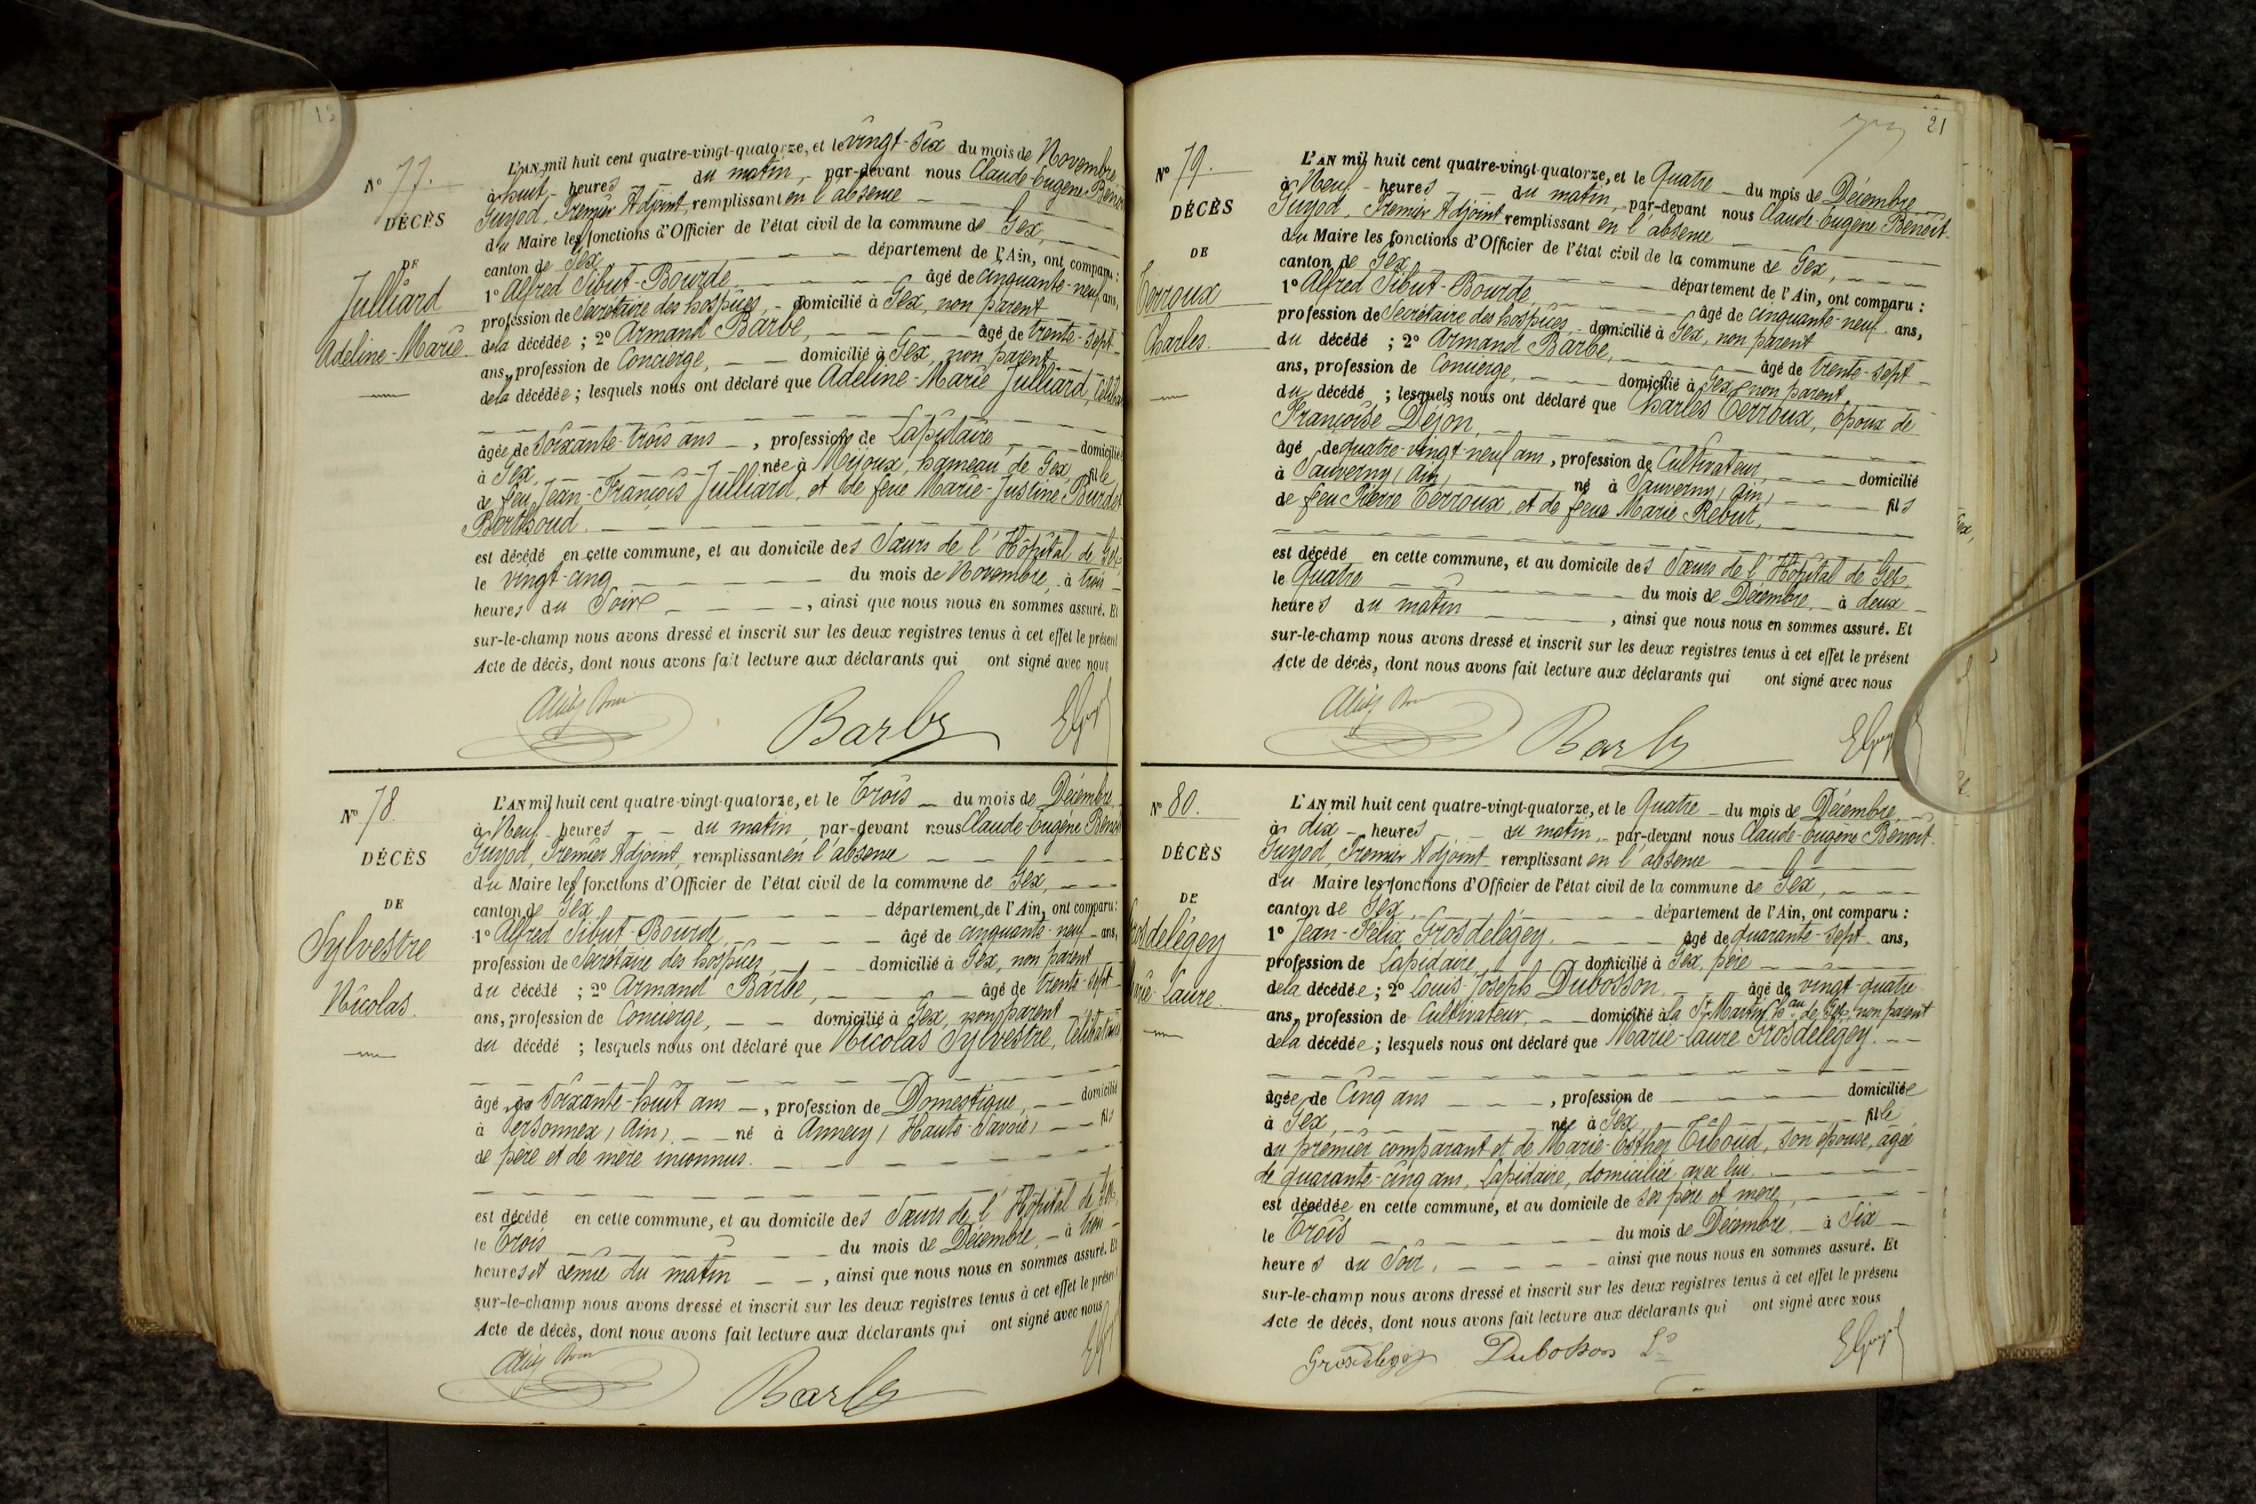 Nº 77.
DÉCÈS
DE
Julliard
Adeline-Marie
L'AN mil huit cent quatre-vingt-quatorze, et le vingt-six du mois de Novembre
à huit heures du matin, par-devant nous Claude-Eugène Benoit
Guyod, Premier Adjoint, remplissant en l'absence
du Maire les fonctions d'Officier de l'état civil de la commune de Gex,
canton de Gex, département de l'Ain, ont comparu :
1º Alfred Sibut-Bourde, âgé de cinquante-neuf ans,
profession de Secrétaire des hospices, domicilié à Gex, non parent
de la décédée ; 2º Armand Barbe, âgé de trente-sept
ans, profession de Concierge, domicilié à Gex, non parent
de la décédée ; lesquels nous ont déclaré que Adeline-Marie Julliard,
âgée de soixante-trois ans, profession de Lapidaire, domiciliée
à Gex, née à Mijoux, hameau de Gex, fille
de feu Jean-François Julliard, et de feue Marie-Justine Burdet
Berthoud.
est décédé en cette commune, et au domicile des Sœurs de l'Hôpital de Gex,
le vingt-cinq du mois de Novembre, à trois
heures du Soir, ainsi que nous nous en sommes assuré. Et
sur-le-champ nous avons dressé et inscrit sur les deux registres tenus à cet effet le présent
Acte de décès, dont nous avons fait lecture aux déclarants qui ont signé avec nous
Barbe
Nº 78.
DÉCÈS
DE
Sylvestre
Nicolas.
L'AN mil huit cent quatre-vingt-quatorze, et le Trois du mois de Décembre
à Neuf heures du matin, par-devant nous Claude-Eugène Benoit
Guyod, Premier Adjoint, remplissant en l'absence
du Maire les fonctions d'Officier de l'état civil de la commune de Gex,
canton de Gex, département de l'Ain, ont comparu :
1º Alfred Sibut-Bourde, âgé de cinquante-neuf ans,
profession de Secrétaire des hospices, domicilié à Gex, non parent
du décédé ; 2º Armand Barbe, âgé de trente-sept
ans, profession de Concierge, domicilié à Gex, non parent
du décédé ; lesquels nous ont déclaré que Nicolas Sylvestre, Célibataire
âgé de Soixante-huit ans, profession de Domestique, domicilié
à Versonnex (Ain), né à Annecy (Haute-Savoie) fils
de père et de mère inconnus.
est décédé en cette commune, et au domicile des Sœurs de l'Hôpital de Gex,
le Trois du mois de Décembre, à trois
heures et demie du matin, ainsi que nous nous en sommes assuré. Et
sur-le-champ nous avons dressé et inscrit sur les deux registres tenus à cet effet le présent
Acte de décès, dont nous avons fait lecture aux déclarants qui ont signé avec nous
Barbe
21
Nº 79.
DÉCÈS
DE
Terroux
Charles.
L'AN mil huit cent quatre-vingt-quatorze, et le Quatre du mois de Décembre
à Neuf heures du matin, par-devant nous Claude-Eugène Benoit
Guyod, Premier Adjoint remplissant en l'absence
du Maire les fonctions d'Officier de l'état civil de la commune de Gex,
canton de Gex, département de l'Ain, ont comparu :
1º Alfred Sibut-Bourde, âgé de cinquante-neuf ans,
profession de Secrétaire des hospices, domicilié à Gex, non parent
du décédé ; 2º Armand Barbe, âgé de trente-sept
ans, profession de Concierge, domicilié à Gex, non parent
du décédé ; lesquels nous ont déclaré que Charles Terroux, époux de
Françoise Déjon,
âgé de quatre-vingt-neuf ans, profession de Cultivateur, domicilié
à Sauverny (Ain) né à Sauverny (Ain) fils
de feu Pierre Terroux, et de feue Marie Rebut,
est décédé en cette commune, et au domicile des Sœurs de l'Hôpital de Gex,
le Quatre du mois de Décembre, à deux
heures du matin, ainsi que nous nous en sommes assuré. Et
sur-le-champ nous avons dressé et inscrit sur les deux registres tenus à cet effet le présent
Acte de décès, dont nous avons fait lecture aux déclarants qui ont signé avec nous
Barbe
Nº 80.
DÉCÈS
DE
Grosdelégey
Marie-Laure.
L'AN mil huit cent quatre-vingt-quatorze, et le Quatre du mois de Décembre,
à dix heures du matin, par-devant nous Claude-Eugène Benoit
Guyod, Premier Adjoint remplissant en l'absence
du Maire les fonctions d'Officier de l'état civil de la commune de Gex,
canton de Gex, département de l'Ain, ont comparu :
1º Jean-Félix Grosdelégey, âgé de quarante-sept ans,
profession de Lapidaire, domicilié à Gex, père
de la décédée ; 2º Louis-Joseph Dubosson, âgé de vingt-quatre
ans, profession de Cultivateur, domicilié à la St Martin, hau de Gex, non parent
de la décédée ; lesquels nous ont déclaré que Marie-Laure Grosdelégey.
âgée de Cinq ans, profession de domiciliée
à Gex, née à Gex, fille
du premier comparant et de Marie-Esther Tiboud, son épouse, âgée
de quarante-cinq ans, Lapidaire, domiciliée avec lui.
est décédée en cette commune, et au domicile de ses père et mère,
le Trois du mois de Décembre, à Six
heures du Soir, ainsi que nous nous en sommes assuré. Et
sur-le-champ nous avons dressé et inscrit sur les deux registres tenus à cet effet le présent
Acte de décès, dont nous avons fait lecture aux déclarants qui ont signé avec nous
Grosdelégey Dubosson Ls